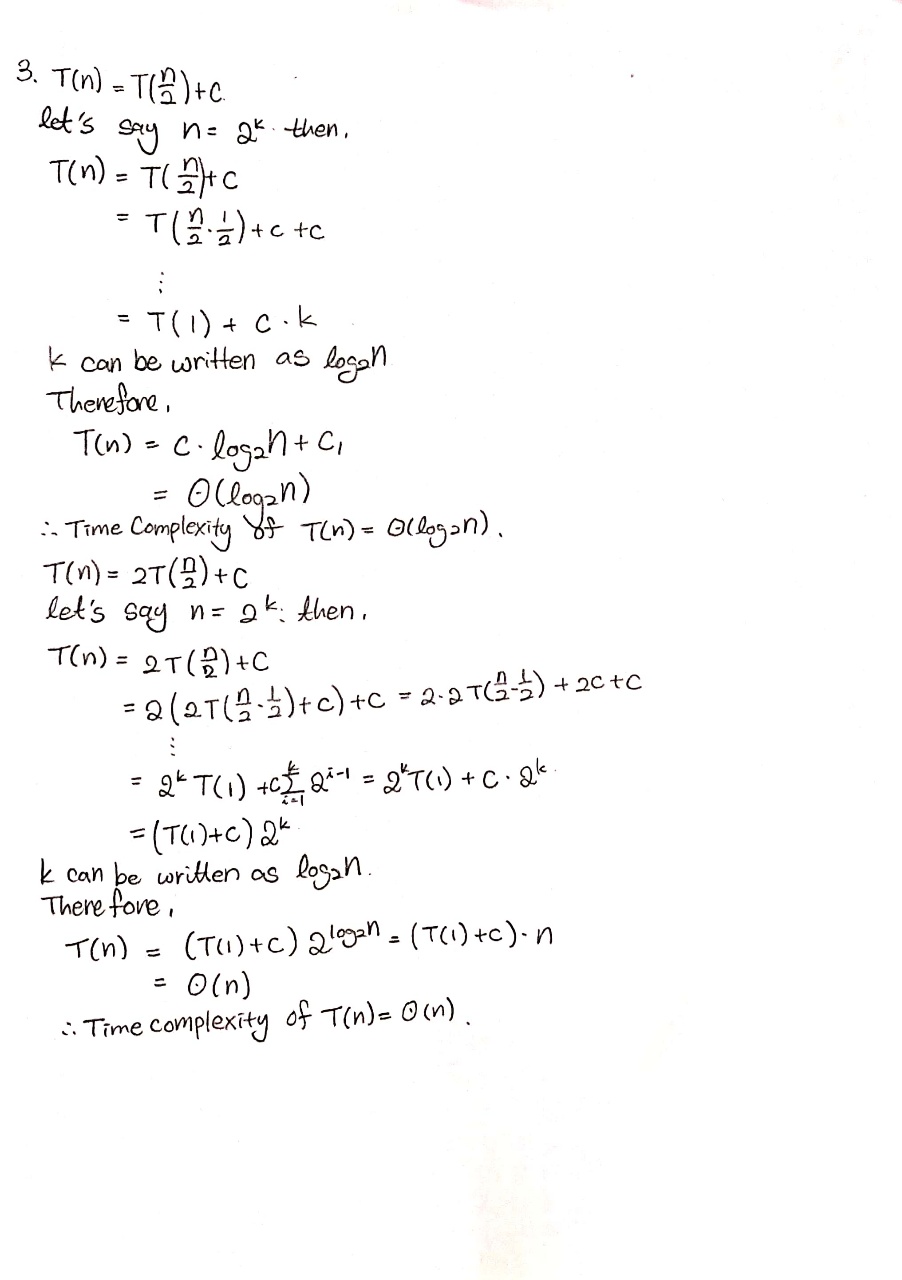 3. T(n) = T(n/2)+c.
let's say n = 2^k. then,
T(n) = T(n/2)+c
= T(n/2·1/2)+c+c
⋮
= T(1) + c·k
k can be written as log₂n
Therefore,
T(n) = c·log₂n + c₁
= Θ(log₂n)
∴ Time Complexity of T(n) = Θ(log₂n).
T(n) = 2T(n/2)+c
let's say n = 2^k. then,
T(n) = 2T(n/2)+c
= 2(2T(n/2·1/2)+c)+c = 2·2T(n/2·1/2)+2c+c
⋮
= 2^k T(1) + c∑_{i=1}^{k} 2^{i-1} = 2^k T(1) + c·2^k.
= (T(1)+c) 2^k
k can be written as log₂n.
Therefore,
T(n) = (T(1)+c) 2^{log₂n} = (T(1)+c)·n
= Θ(n)
∴ Time complexity of T(n) = Θ(n).